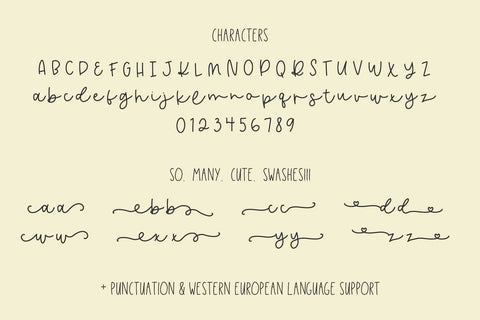 CHARACTERS
ABCDEFGHIJKLMNOPQRSTUVWXYZ
abcdefghijklmnopqrstuvwxyz
0123456789
SO. MANY. CUTE. SWASHES!!!
aa bb cc dd
ww xx yy zz
+ PUNCTUATION & WESTERN EUROPEAN LANGUAGE SUPPORT